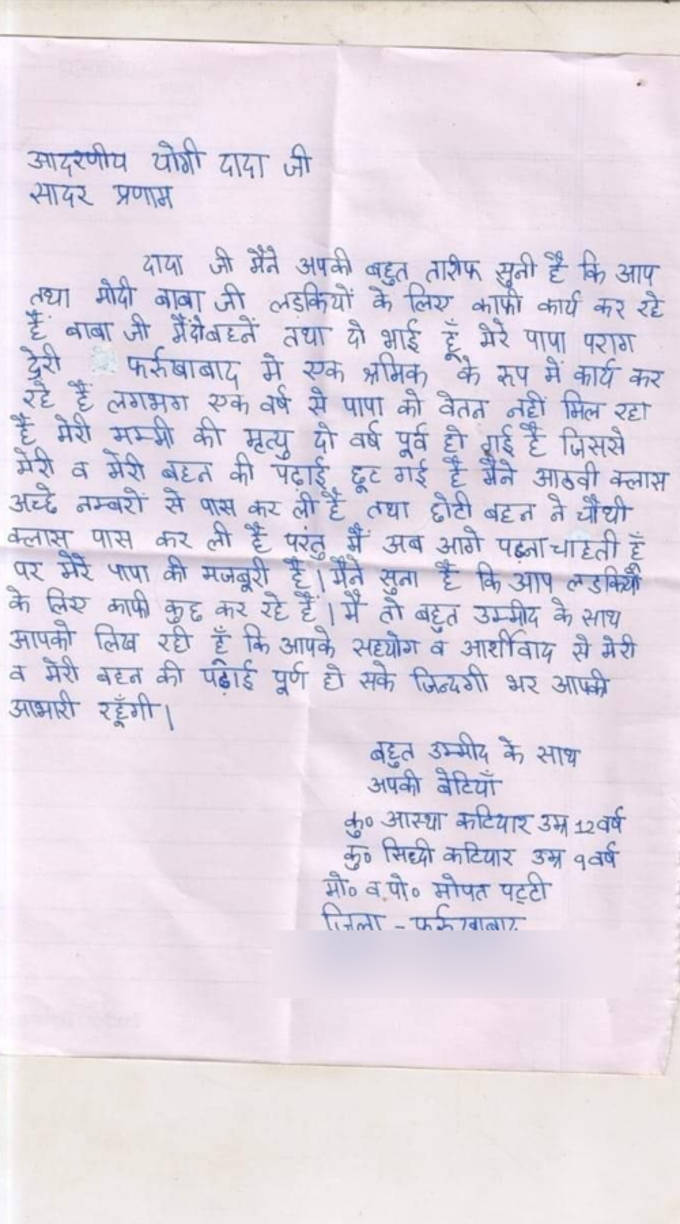 आदरणीय योगी दादा जी
सादर प्रणाम
दादा जी मैंने अपकी बहुत तारीफ सुनी है कि आप
तथा मोदी बाबा जी लड़कियों के लिए काफी कार्य कर रहे
हैं बाबा जी मैंदोबहनें तथा दो भाई हूँ मेरे पापा पराग
डेरी फर्रुखाबाद मे एक श्रमिक के रूप में कार्य कर
रहे हैं लगभग एक वर्ष से पापा को वेतन नहीं मिल रहा
है मेरी मम्मी की मृत्यु दो वर्ष पूर्व हो गई है जिससे
मेरी व मेरी बहन की पढाई छूट गई है मैंने आठवी क्लास
अच्छे नम्बरों से पास कर ली है तथा छोटी बहन ने चौथी
क्लास पास कर ली है परंतु मैं अब आगे पढ़ना चाहती हूँ
पर मेरे पापा की मजबूरी है। मैंने सुना है कि आप लडकियों
के लिए काफी कुछ कर रहे हैं। मैं तो बहुत उम्मीद के साथ
आपको लिख रही हूँ कि आपके सहयोग व आर्शीवाद से मेरी
व मेरी बहन की पढ़ाई पूर्ण हो सके जिन्दगी भर आपकी
आभारी रहूँगी।
बहुत उम्मीद के साथ
अपकी बेटियाँ
कु० आस्था कटियार उम्र 12 वर्ष
कु० सिध्दी कटियार उम्र 9 वर्ष
मो० व पो० मोपत पट्टी
जिला - फर्रुखाबाद